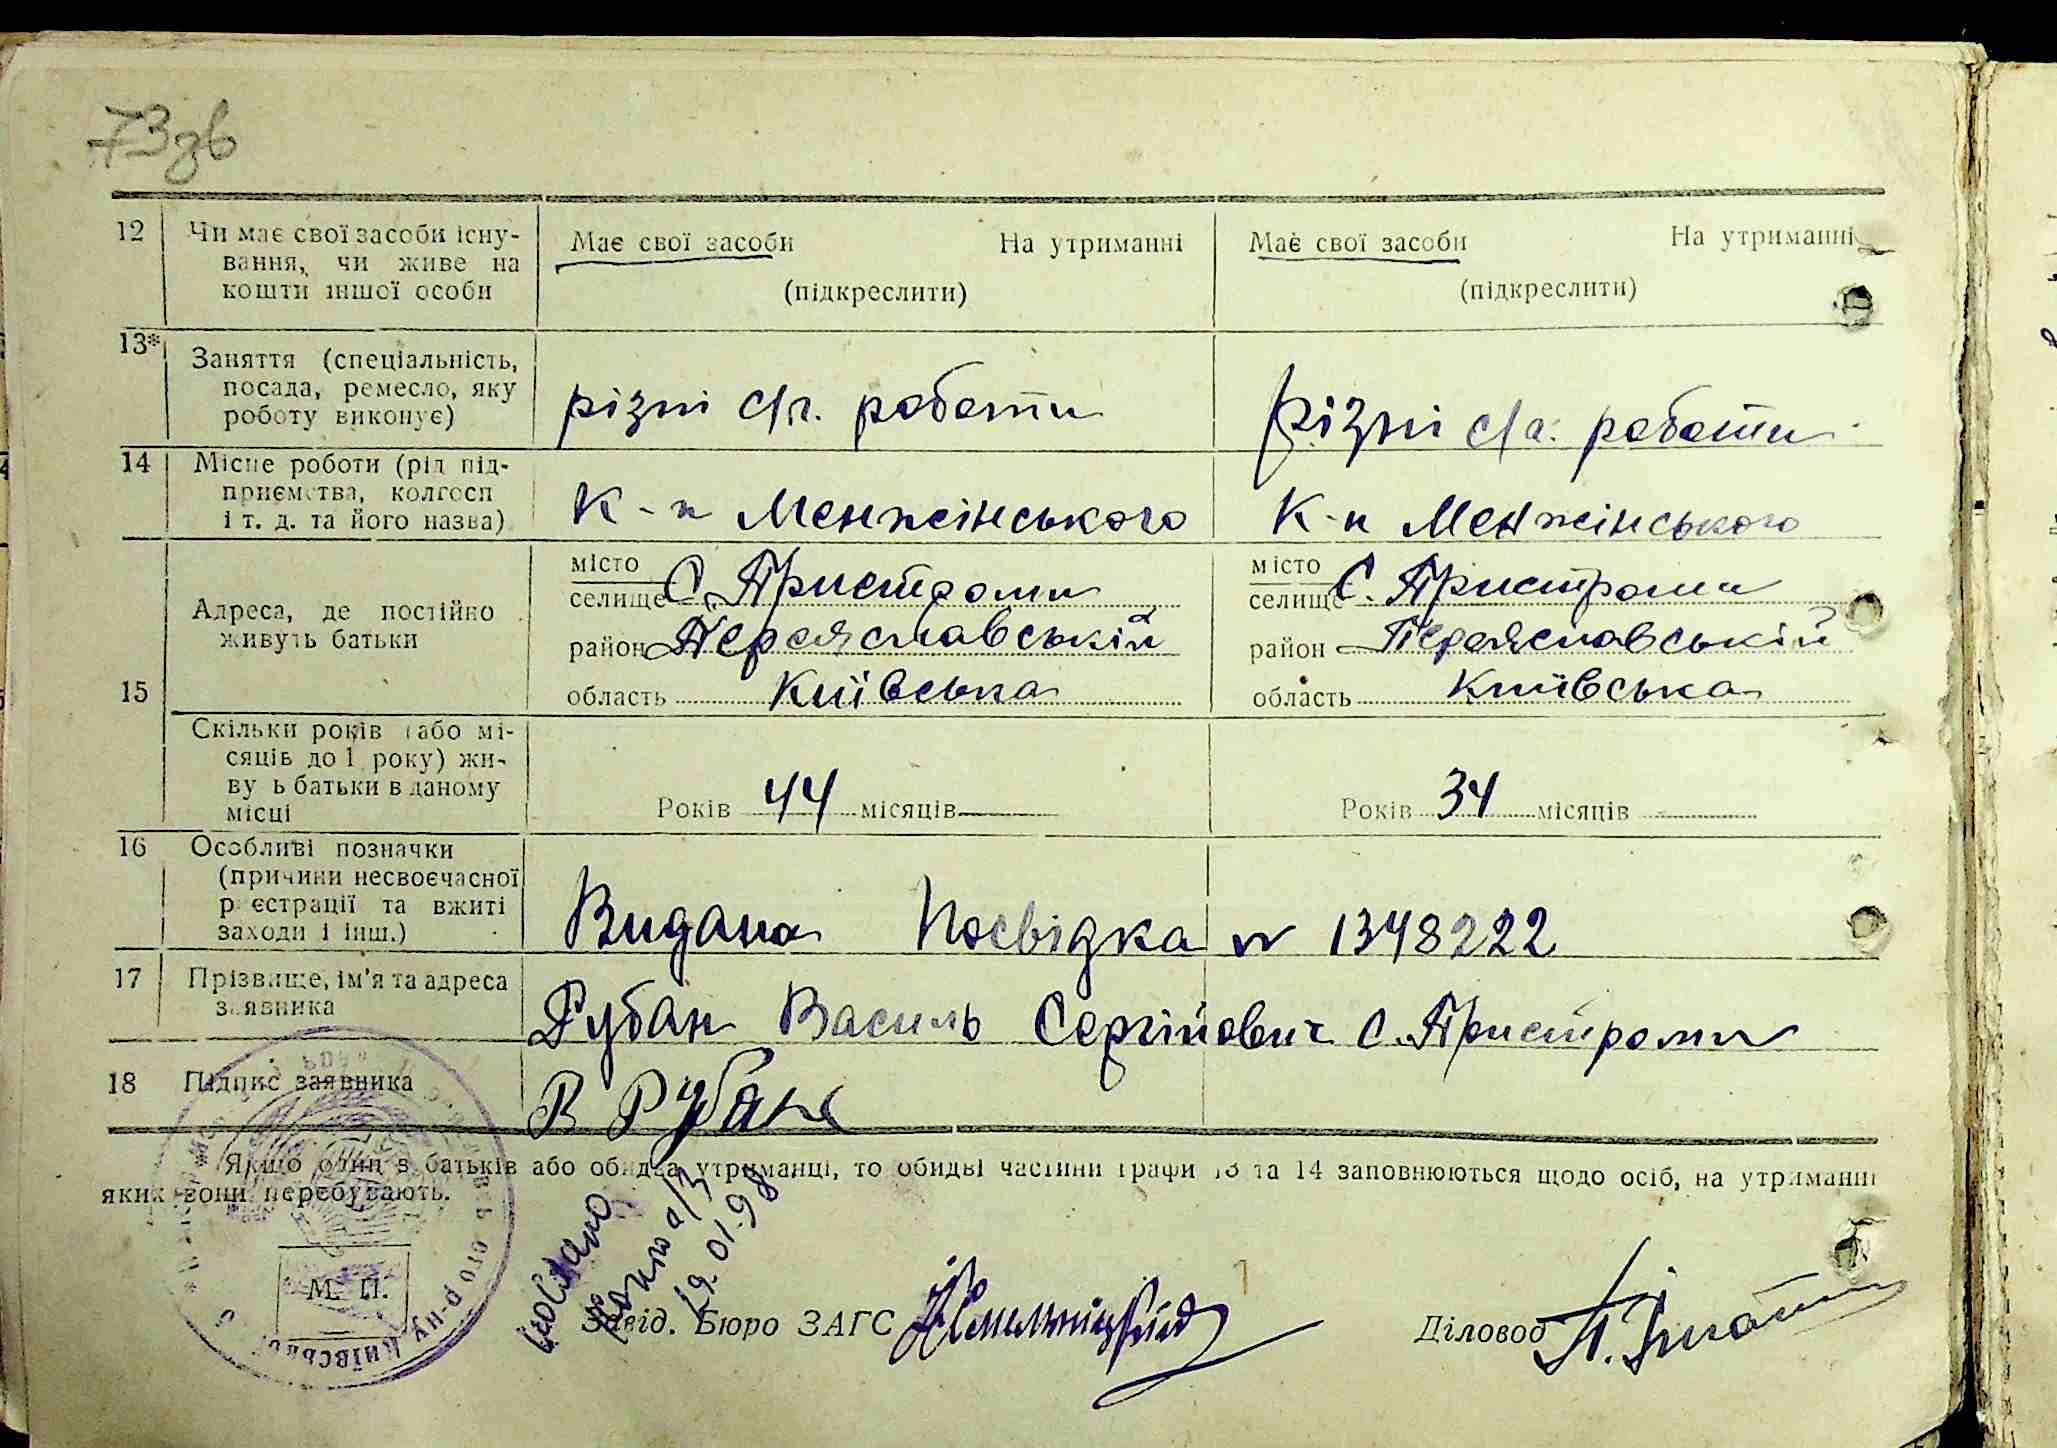 73зв
12 Чи має свої засоби існу- Має свої засоби На утриманні Має свої засоби На утриманні
вання, чи живе на
кошти іншої особи (підкреслити) (підкреслити)
13* Заняття (спеціальність,
посада, ремесло, яку
роботу виконує) різні с/г. роботи різні с/г. роботи
14 Місце роботи (рід під-
приємства, колгосп
і т. д. та його назва) К-п Менжінського К-п Менжінського
місто місто
Адреса, де постійно селище С. Пристроми селище С. Пристроми
живуть батьки район Переяславській район Переяславській
15 область Київська область Київська
Скільки років (або мі-
сяців до 1 року) жи-
вуть батьки в даному Років 44 місяців Років 34 місяців
місці
16 Особливі позначки
(причини несвоєчасної
реєстрації та вжиті
заходи і інш.) Видана Посвідка № 1348222
17 Прізвище, ім'я та адреса
заявника Рубан Василь Сергійович С. Пристроми
18 Підпис заявника В Рубан
* Якщо один з батьків або обидва утриманці, то обидві частини графи 13 та 14 заповнюються щодо осіб, на утриманні
яких вони перебувають.
19.01.98
М. П.
Завід. Бюро ЗАГС Діловод